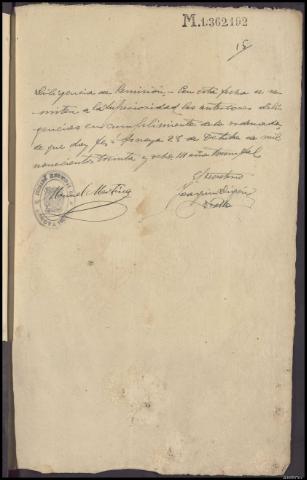 M.1.362.192
15
Diligencia de Remisión.- Con esta fecha se re-
miten a la Superioridad las anteriores dili-
gencias en cumplimiento de lo ordenado,
de que doy fe. 28 de Octubre de mil
novecientos treinta y ocho III año Triunfal
El Secretario
Manuel Martínez
Joaquín